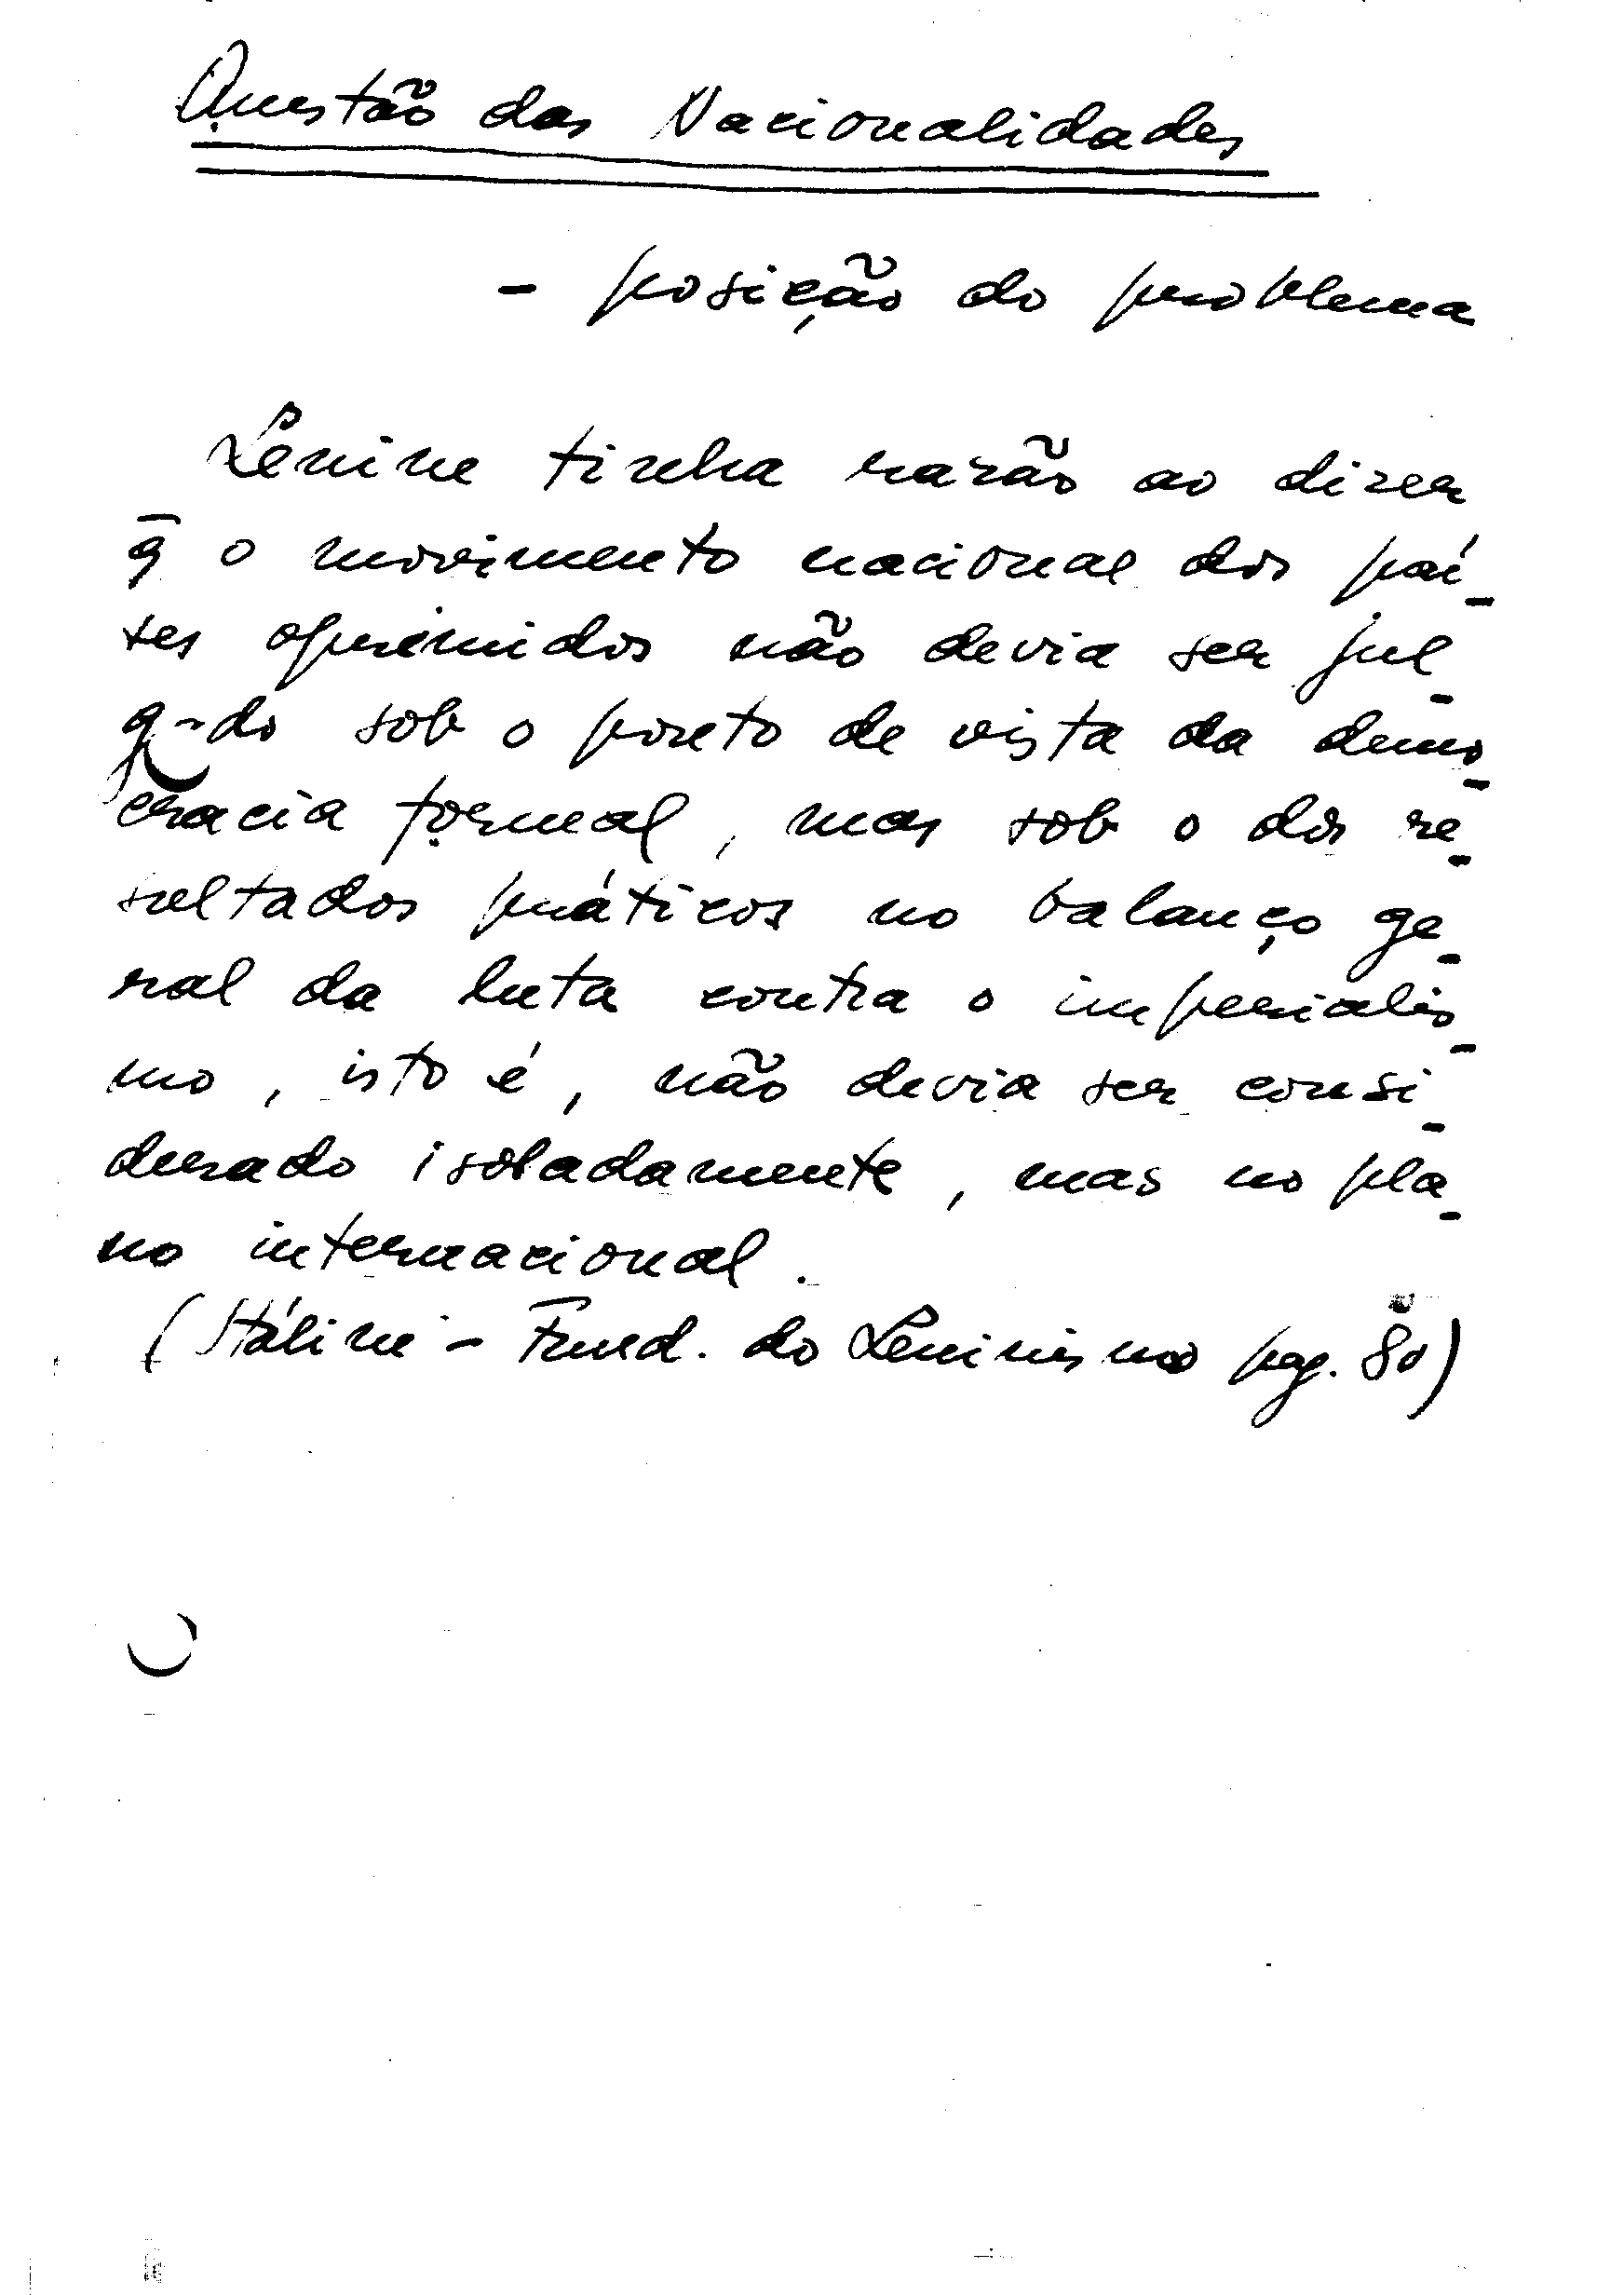 Questão das Nacionalidades
- posição do problema
Lénine tinha razão ao dizer
q̄ o movimento nacional dos paí-
ses oprimidos não devia ser jul-
gado sob o ponto de vista da demo-
cracia formal, mas sob o dos re-
sultados práticos no balanço ge-
ral da luta contra o imperialis-
mo, isto é, não devia ser consi-
derado isoladamente, mas no pla-
no internacional.
(Stáline - Fund. do Leninismo pag. 80)